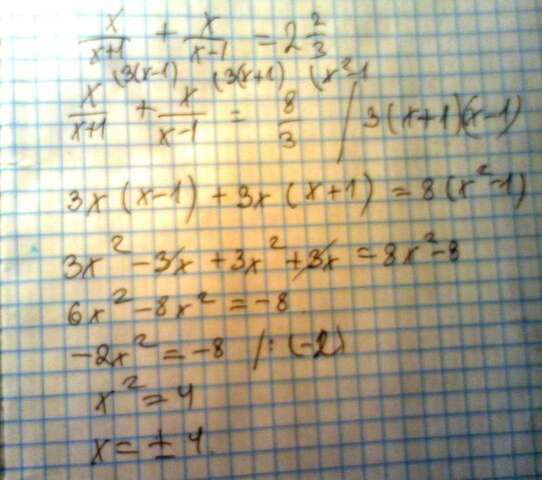 x/(x+1) + x/(x-1) = 2 2/3
(3(x-1) (3(x+1) (x²-1
x/(x+1) + x/(x-1) = 8/3 / 3(x+1)(x-1)
3x(x-1) + 3x(x+1) = 8(x²-1)
3x² - 3x + 3x² + 3x = 8x² - 8
6x² - 8x² = -8
-2x² = -8 /:(-2)
x² = 4
x = ± 4